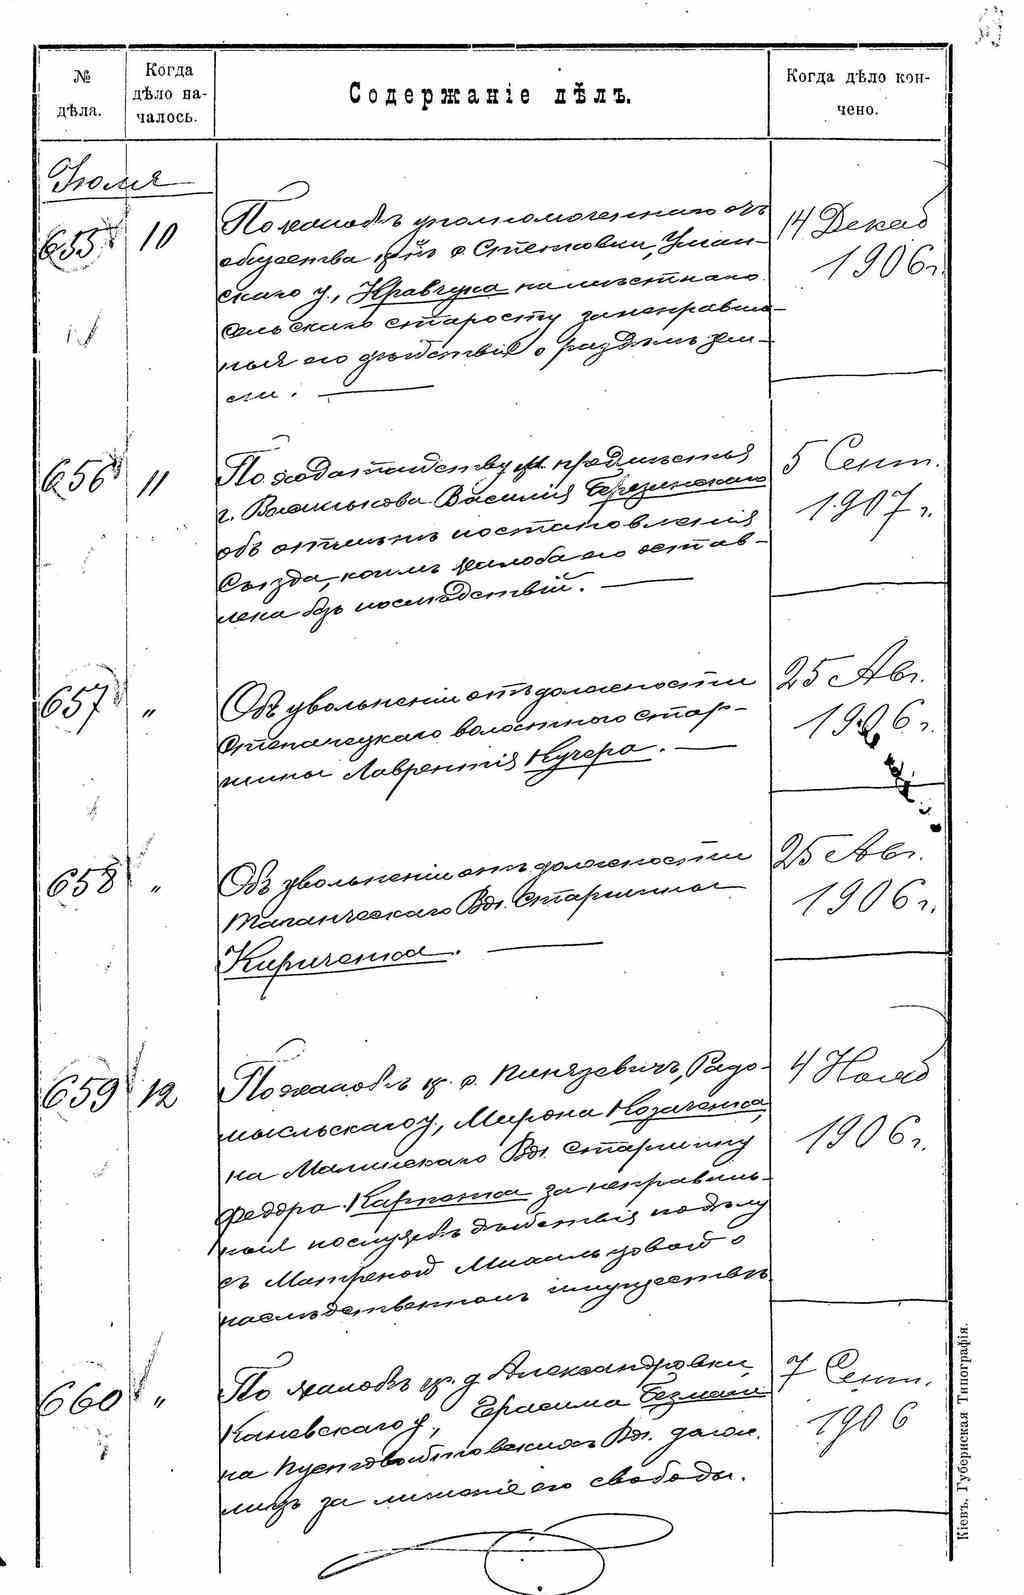 № дѣла.
Когда дѣло на-
чалось.
Содержаніе дѣлъ.
Когда дѣло кон-
чено.
Іюля
655
10
По жалобѣ уполномоченнаго отъ
общества кр. с. Степковки, Уман-
скаго у., Кравчука на мѣстнаго
сельскаго старосту за неправиль-
ныя его дѣйствія о раздѣлѣ зем-
ли.
14 Декаб
1906 г.
656
11
По ходатайству м. предмѣстья
г. Василькова Василія
объ отмѣнѣ постановленія
Съѣзда, коимъ жалоба его остав-
лена безъ послѣдствій.
5 Сент.
1907 г.
657
"
Объ увольненіи отъ должности
Степанецкаго волостного стар-
шины Лаврентія Кучера.
25 Авг.
1906 г.
658
"
Объ увольненіи отъ должности
Таганческаго Вол. Старшины
Кириченка.
25 Авг.
1906 г.
659
12
По жалобѣ кр. с. Пинязевичъ, Радо-
мысльскаго у., Мирона Козаченка,
на Малинскаго Вол. Старшину
Федора Карпенка за неправиль-
ныя по службѣ дѣйствія по дѣлу
съ Матреной о
наслѣдственномъ имуществѣ
4 Нояб
1906 г.
660
"
По жалобѣ кр. д. Александровки,
Каневскаго у, Герасима
на Вол. долж.
лицъ за лишеніе его свободы.
7 Сент.
1906
Кіевъ. Губернская Типографія.